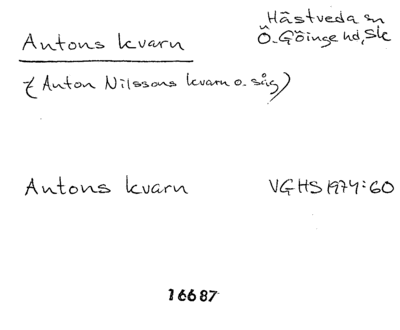 Antons kvarn
Hästveda sn
Ö. Göinge hd, Sk
(Anton Nilssons kvarn o. såg)
Antons kvarn
VGHS 1974:60
16687